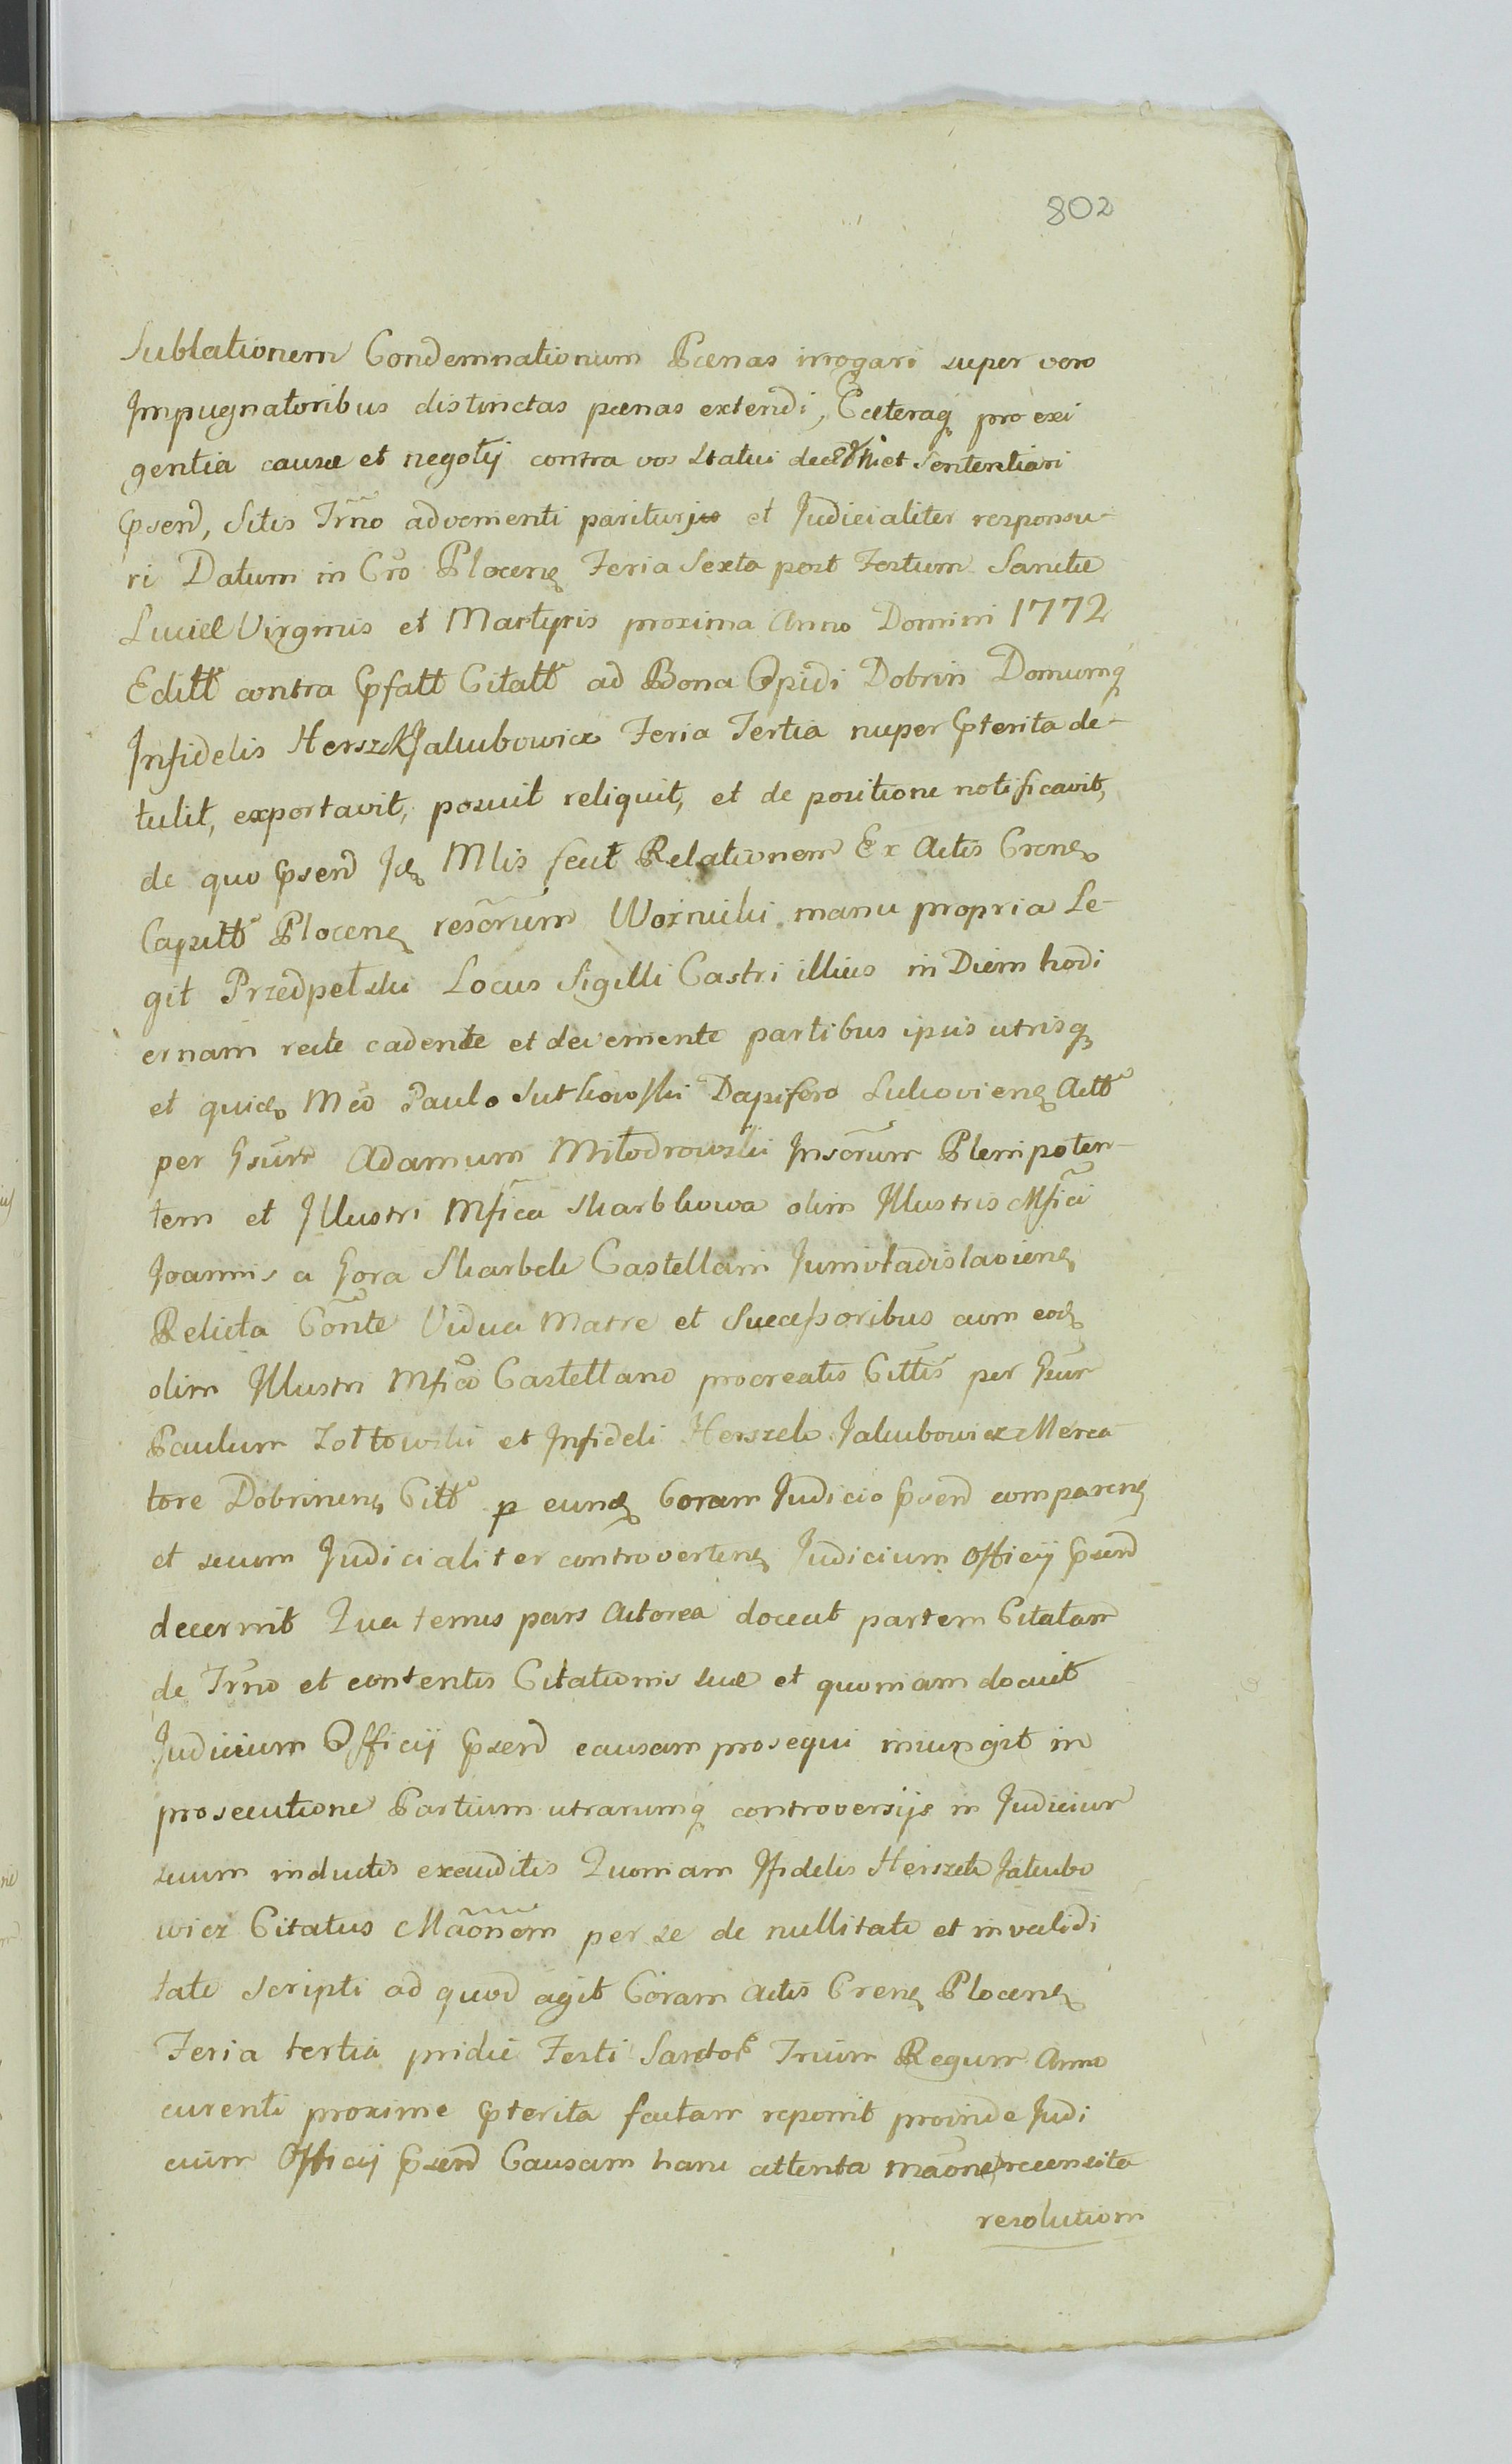 802
Sublationem Condemnationum Pœnas irrogari super vero
Impugnatoribus distinctas pœnas extendi, Cæteraq pro exi
gentia causæ et negotij contra vos statui decerni et Sententiari
Psend, Sitis Trno advenienti parituri et Judicialiter responsu-
ri Datum in Cro Plocens Feria Sexta post Festum Sanctæ
Luciæ Virginis et Martyris proxima Anno Domini 1772
Editt contra Pfatt Citatt ad Bona Opidi Dobrin Domumq
Infidelis Herszk Jakubowicz Feria Tertia nuper Pterita de-
tulit, exportavit, posuit reliquit, et de positione notificavit,
de quo Psend Id Mlis fecit Relationem Ex Actis Crens
Capitt Plocens rescrum Woznicki manu propria Le-
git Przedpełski Locus Sigilli Castri illius in Diem hodi
ernam recte cadente et devemente partibus ipsis utrisq
et quid Mco Paulo Sutkowski Dapifero Lukoviens Actt
per Gsum Adamum Miłodrowski Inscrum Plenipoten-
tem et Illustri Mfica Skarbkowa olim Illustris Mfici
Joannis a Gora Skarbek Castellani Junivladislaviens
Relicta Conte Vidua Matre et Successoribus cum eod
olim Illustri Mfico Castellano procreatis Cittis per Gsum
Paulum Zołtowski et Infideli Herszek Jakubowicz Merca
tore Dobrinens Citt p eund Coram Judicio Psend comparens
et secum Judicialiter controvertens Judicium Officij Psend
decernit Quatenus pars Actorea doceat partem Citatam
de Trno et contentis Citationis suæ et quoniam docuit
Judicium Officij Psend causam prosequi iniungit in
prosecutione Partium utrarumq controversijs in Judicium
suum inductis exauditis Quoniam Ifidelis Herszek Jakubo
wicz Citatus Maonem per se de nullitate et invalidi
tate Scripti ad quod agit Coram Actis Crens Plocens
Feria tertia pridie Festi Sanctor Trium Regum Anno
curenti proxime Pterita factam reponit proinde Judi
cium Officij Psend Causam hanc attenta maone recensita
resolutioni